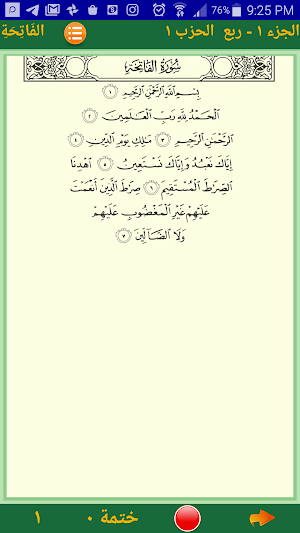 79% 9:25 PM
الجزء ١ - ربع الحزب ١ الفَاتِحَةِ
سُورَةُ الفَاتِحَةِ
بِسْمِ ٱللَّهِ ٱلرَّحْمَٰنِ ٱلرَّحِيمِ ١
ٱلْحَمْدُ لِلَّهِ رَبِّ ٱلْعَٰلَمِينَ ٢
ٱلرَّحْمَٰنِ ٱلرَّحِيمِ ٣ مَٰلِكِ يَوْمِ ٱلدِّينِ ٤
إِيَّاكَ نَعْبُدُ وَإِيَّاكَ نَسْتَعِينُ ٥ ٱهْدِنَا
ٱلصِّرَٰطَ ٱلْمُسْتَقِيمَ ٦ صِرَٰطَ ٱلَّذِينَ أَنْعَمْتَ
عَلَيْهِمْ غَيْرِ ٱلْمَغْضُوبِ عَلَيْهِمْ
وَلَا ٱلضَّآلِّينَ ٧
ختمة ٠ ١